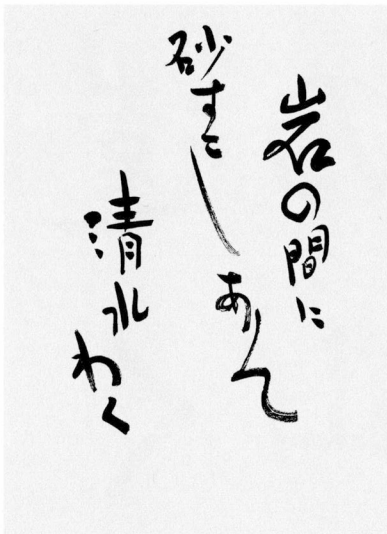 岩の間に
砂すこしありて
清水わく